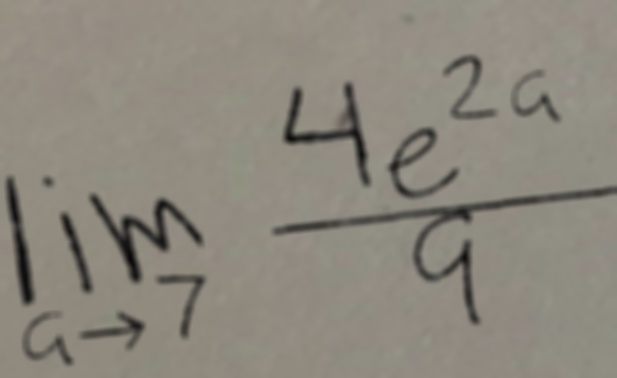 \lim_{a \to 7} \frac{4e^{2a}}{9}